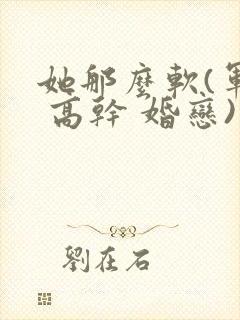 她那麼軟(軍
高幹 婚戀)
劉在石